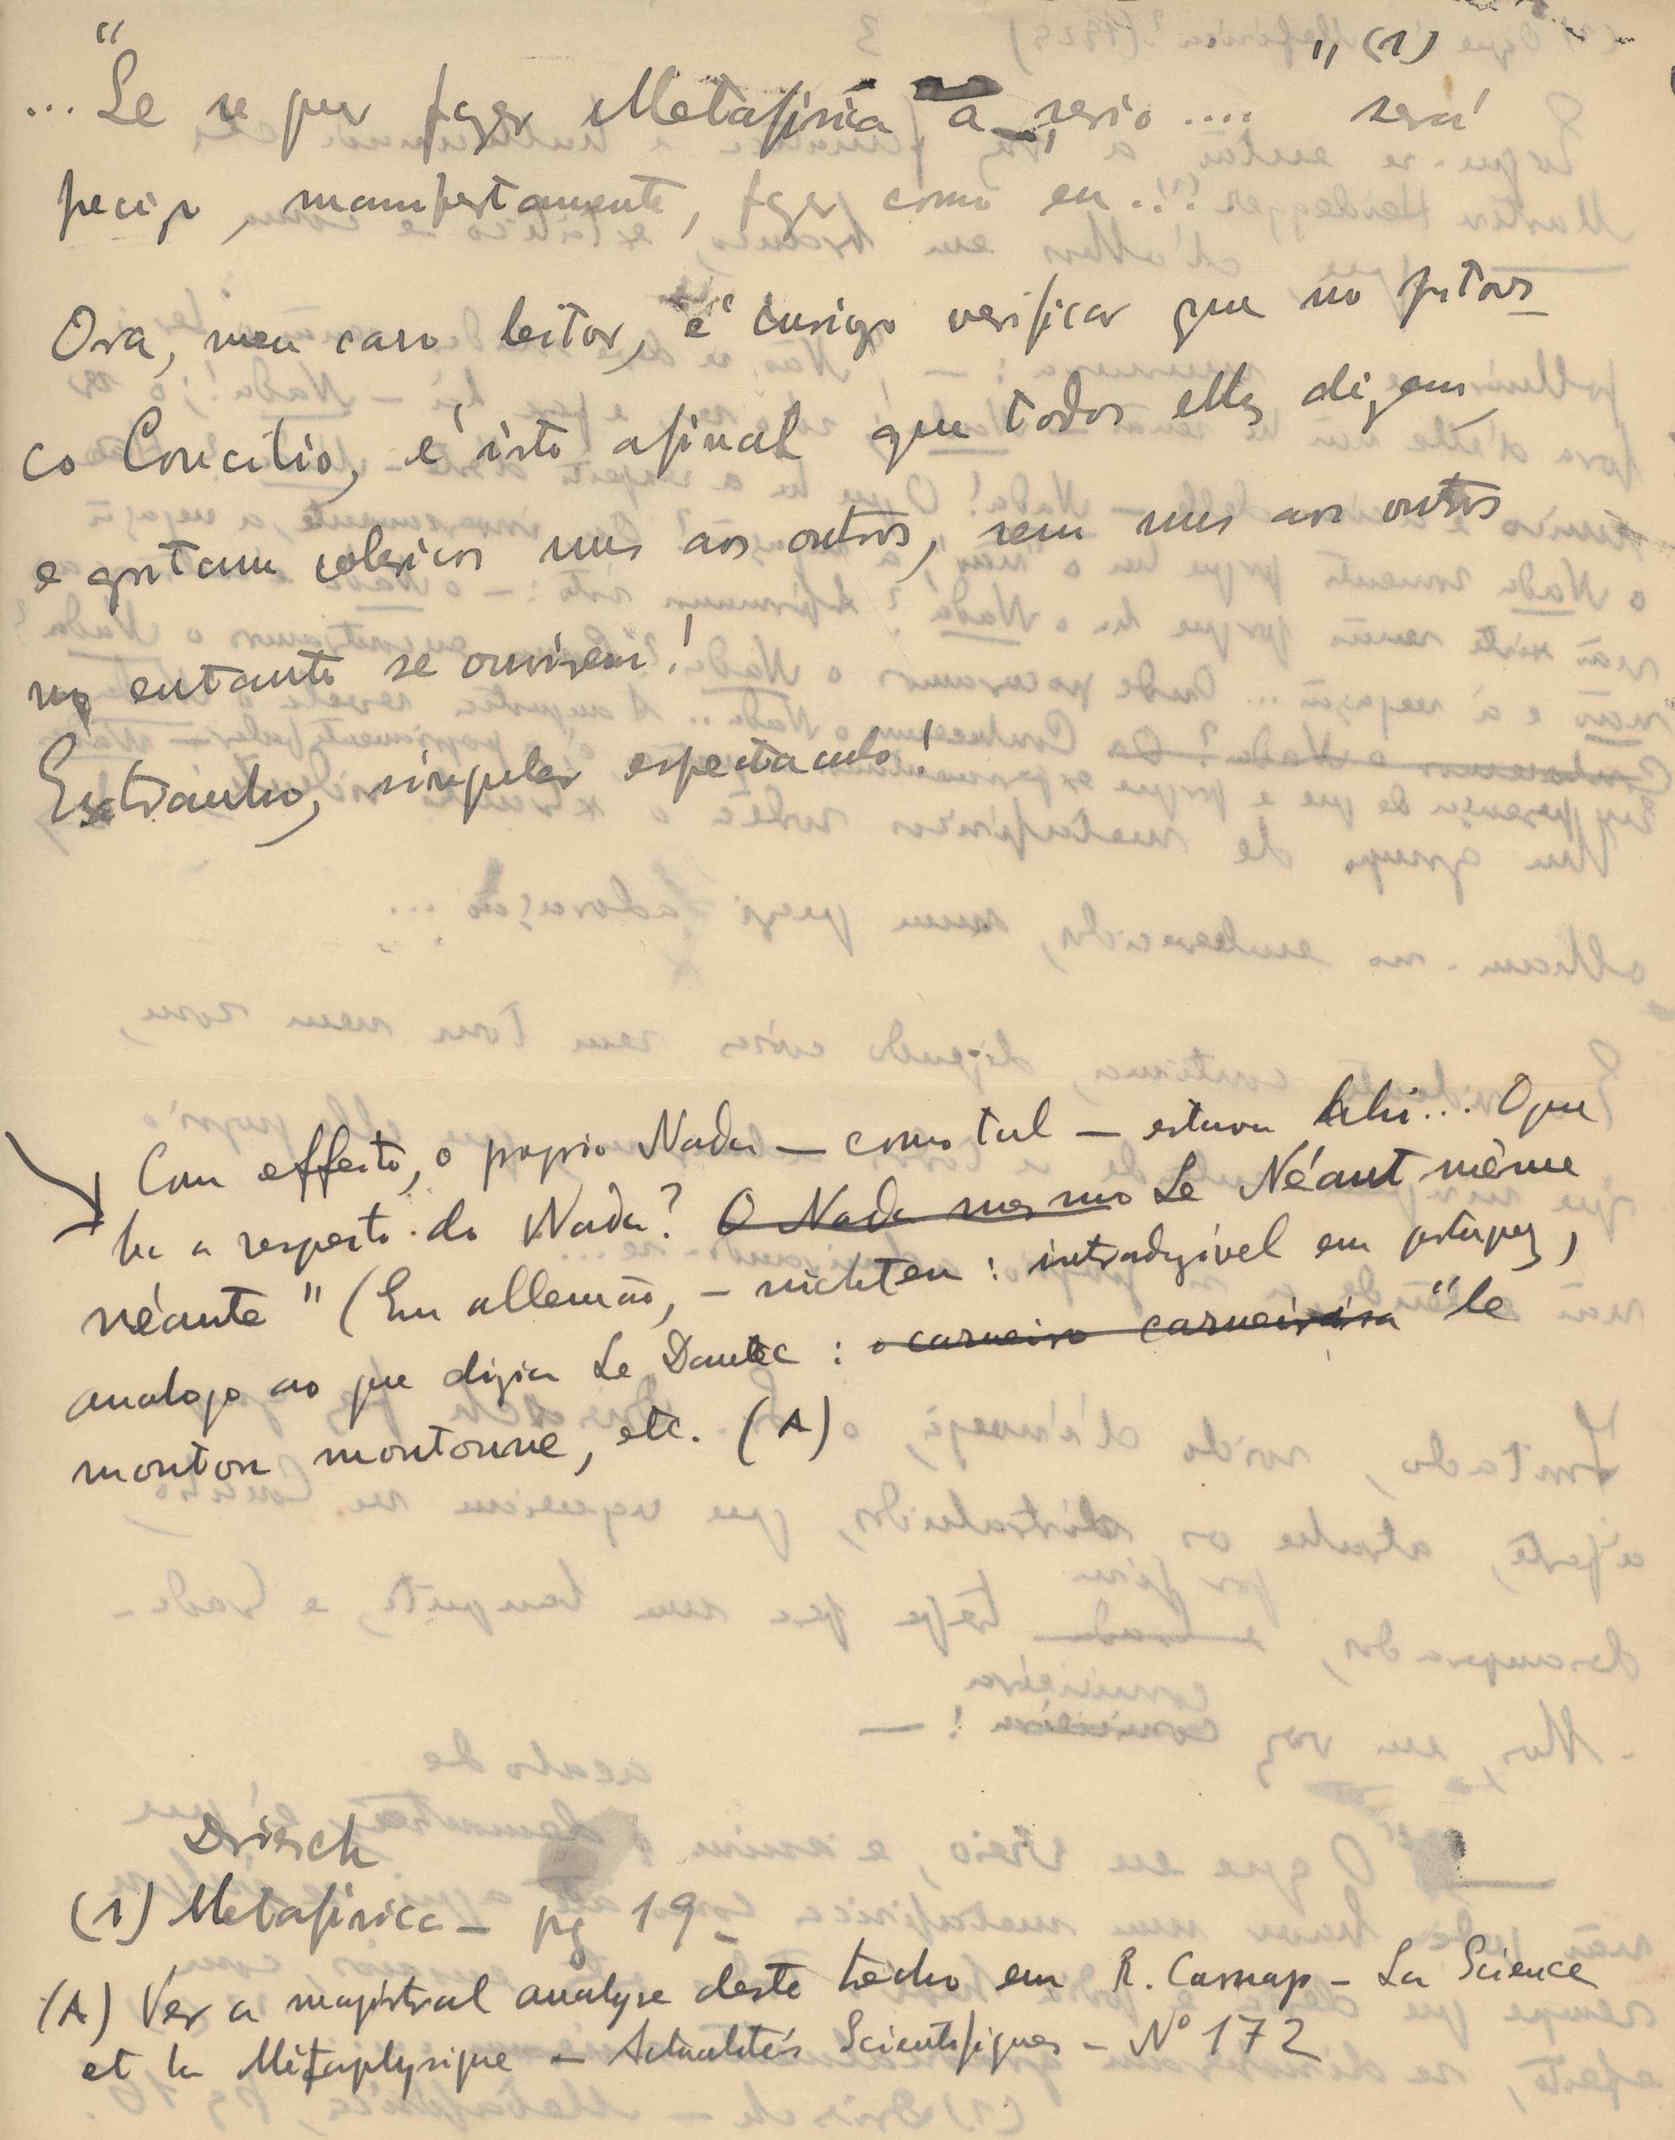 " " (1)
... Se se quer fazer Metafisica a serio .... será
preciso, manifestamente, fazer como eu.!!
Ora, meu caro leitor, é curioso verificar que no pitores-
co Concilio, é isto afinal que todos elles dizem,
e gritam colericos uns aos outros, sem uns aos outros
no entanto se ouvirem!
Extranho, singular espectaculo!
Com effeito, o proprio Nada — como tal — estava lahi... O que
ha a respeito do Nada? O Nada mesmo Le Néant même
néante" (Em allemão, — nichten: intraduzivel em portuguez,
analogo ao que dizia Le Dantec: o carneiro carneirisa "le
mouton moutonne, etc. (A)
Driesch
(1) Metafisica — pg 19 —
(A) Ver a magistral analyse deste trecho em R. Carnap — La Science
et la Métaphysique — Actualités Scientifiques — Nº 172